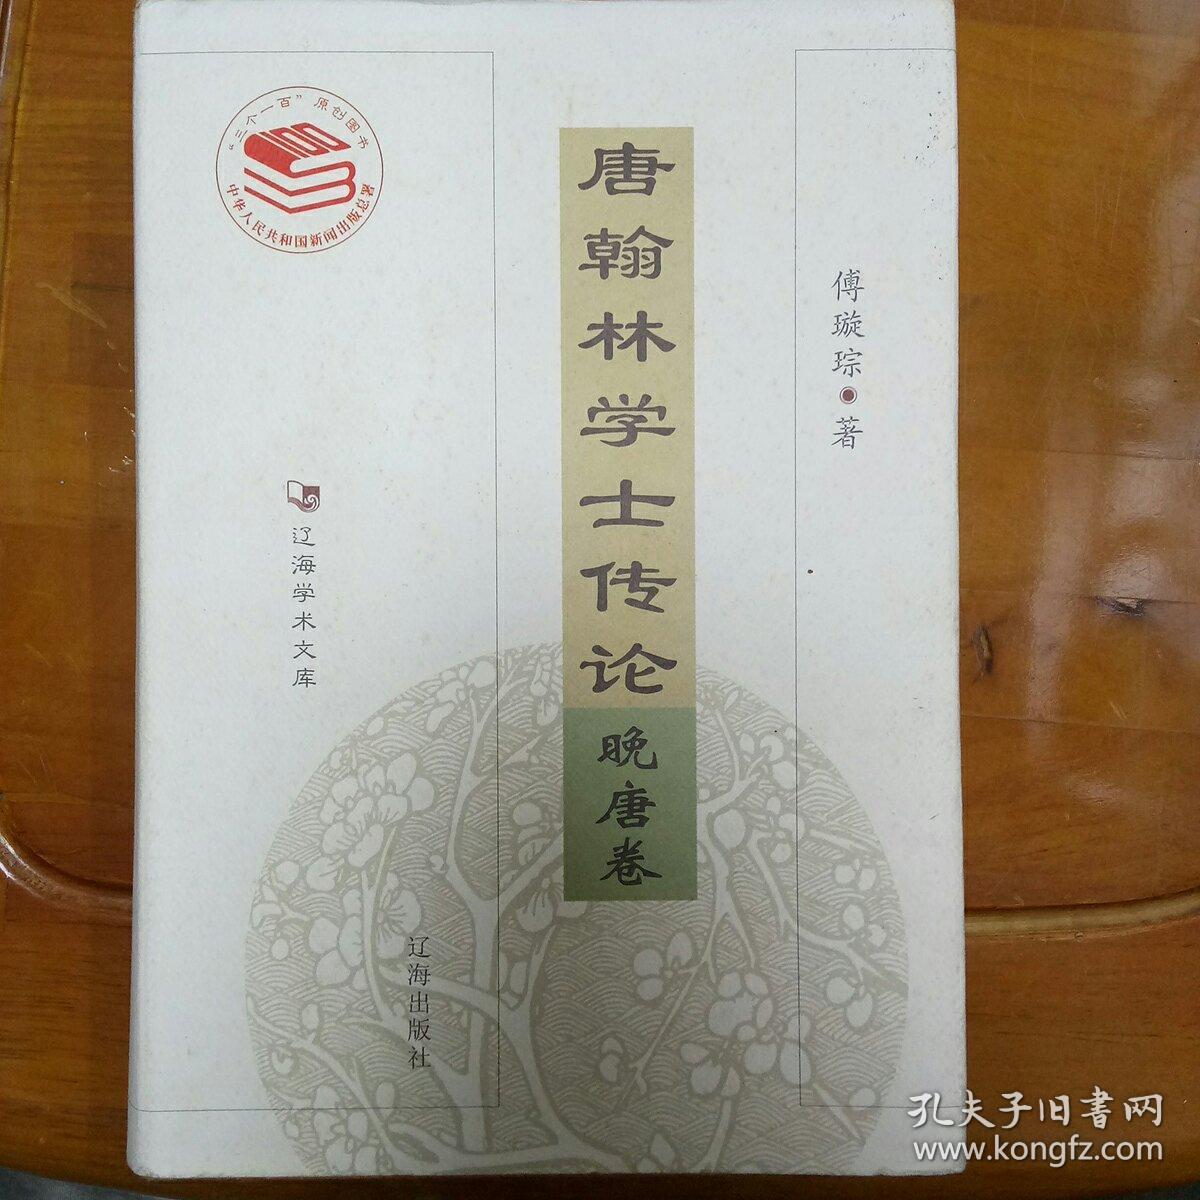 “三个一百”原创图书
100
中华人民共和国新闻出版总署
唐翰林学士传论
晚唐卷
傅璇琮◉著
辽海学术文库
辽海出版社
孔夫子旧書网
www.kongfz.com